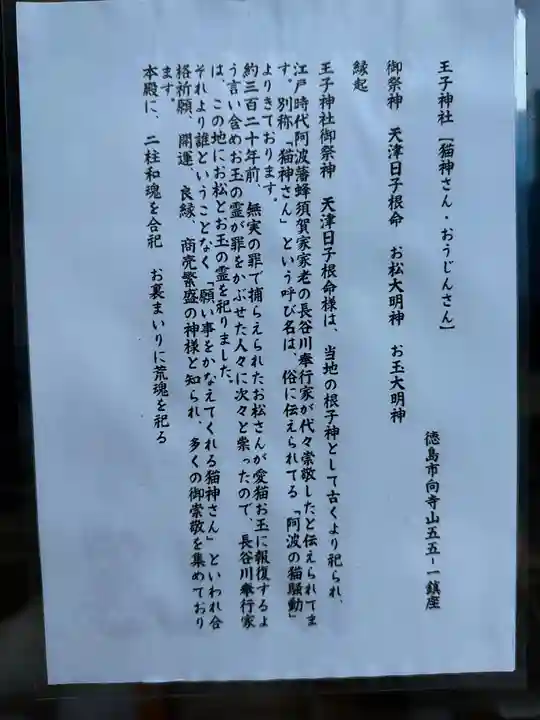 王子神社 [猫神さん・おうじんさん]
徳島市向寺山五五-一鎮座
御祭神 天津日子根命 お松大明神 お玉大明神
縁起
王子神社御祭神 天津日子根命様は、当地の根子神として古くより祀られ、
江戸時代阿波藩蜂須賀家家老の長谷川奉行家が代々崇敬したと伝えられてま
す。別称「猫神さん」という呼び名は、俗に伝えられてる「阿波の猫騒動」
よりきております。
約三百二十年前、無実の罪で捕らえられたお松さんが愛猫お玉に報復するよ
う言い含めお玉の霊が罪をかぶせた人々に次々と祟ったので、長谷川奉行家
は、この地にお松とお玉の霊を祀りました。
それより誰ということなく「願い事をかなえてくれる猫神さん」といわれ合
格祈願、開運、良縁、商売繁盛の神様と知られ、多くの御崇敬を集めており
ます。
本殿に、二柱和魂を合祀 お裏まいりに荒魂を祀る